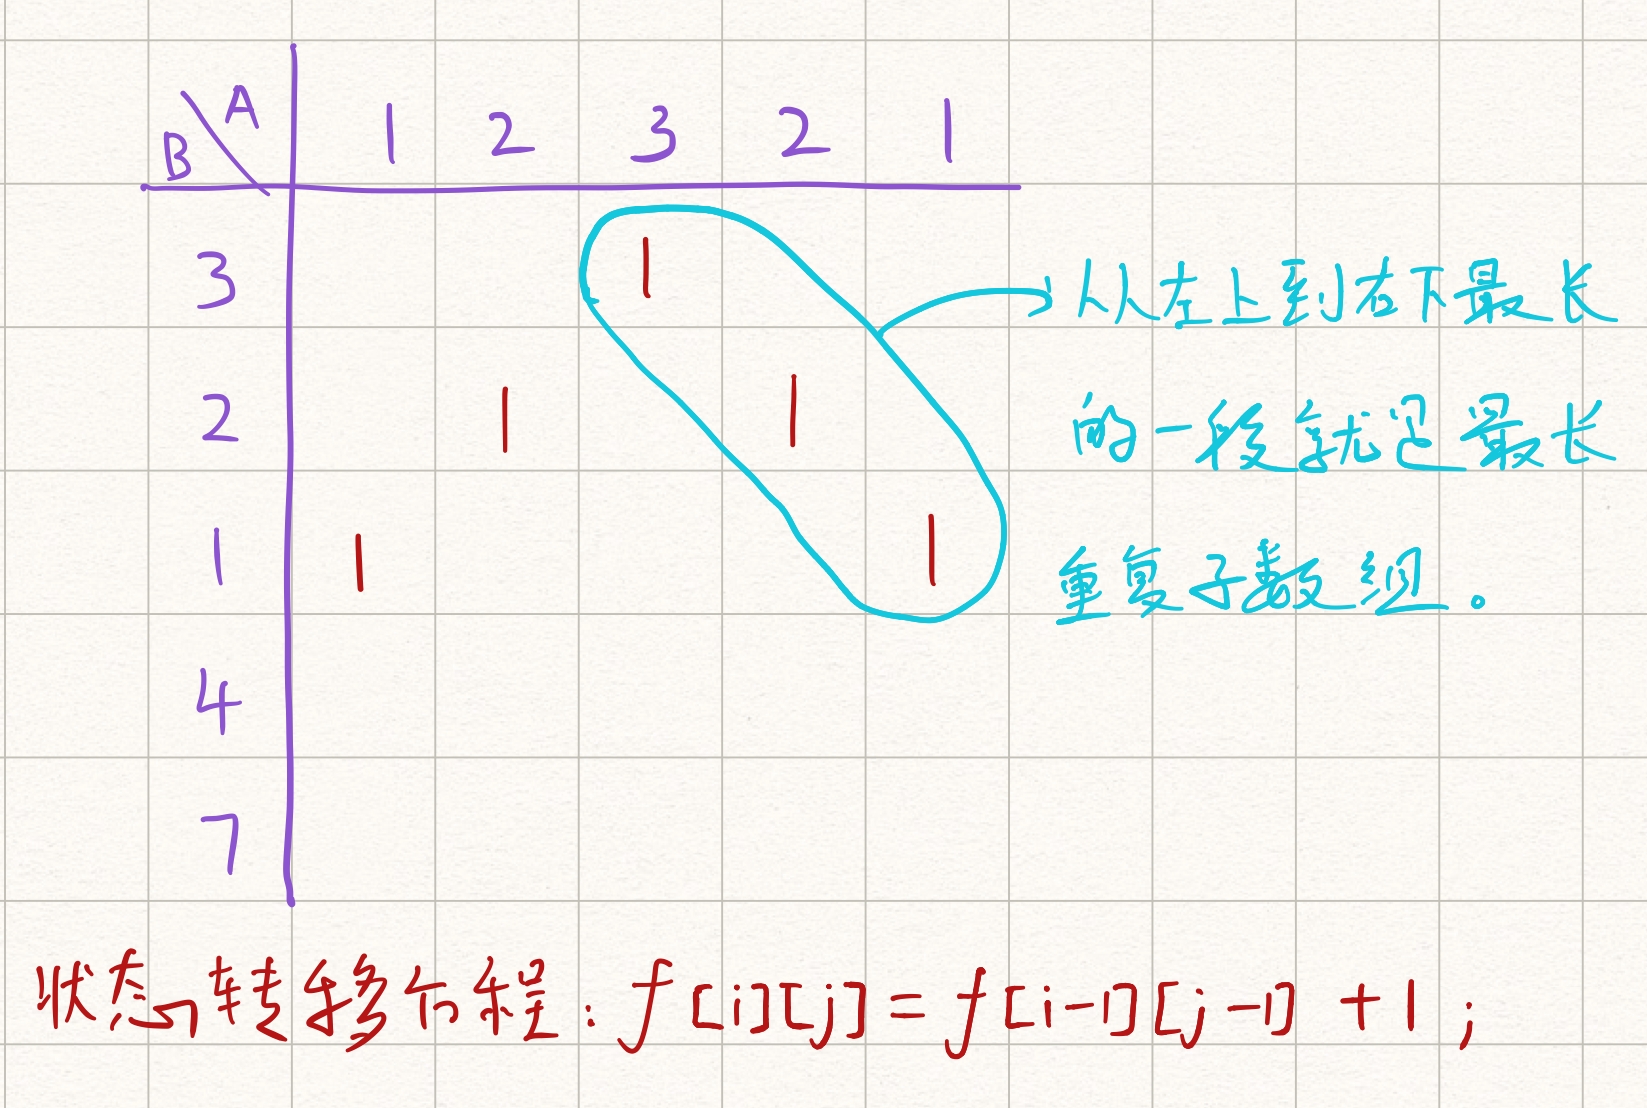 A
B
1 2 3 2 1
3 1
2 1 1
1 1 1
4
7
从左上到右下最长
的一段就是最长
重复子数组。
状态转移方程: f[i][j] = f[i-1][j-1] + 1;